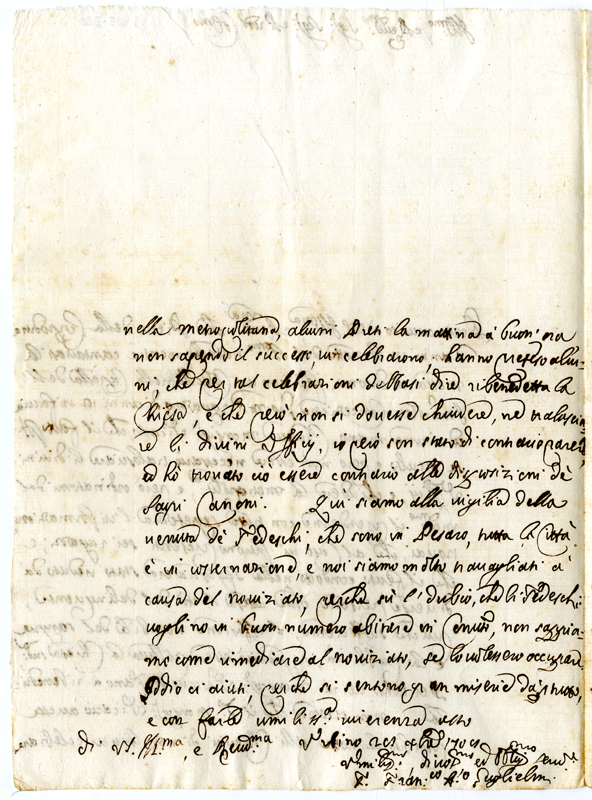 nella metropolitana, alcuni Preti la mattina à buon'ora
non sapendo il successo, vi celebrorono, hanno preteso alcu-
ni, che per tal celebrazioni debbasi dire ribenedetta la
Chiesa, e che però non si dovesse chiudere, ne tralascia-
re li divini Offitij, io però son stato di contrario parere,
ed hò trovato ciò essere contrario alle disposizioni de
Sagri Canoni. Qui siamo alla vigilia della
venuta de Tedeschi, che sono in Pesaro, tutta la Città
è in costernazione, e noi siamo molto travagliati à
causa del noviziato, perche si è dubio, che li Tedeschi
voglino in buon numero abitare in Convto, non sappia-
mo come rimediare al noviziato, se lo volessero occupare
Iddio ci aiuti, perche si sentono gran miserie da p tutto,
e con farle umiliss.a riverenza resto
di VS. Ill.ma, e Revd.ma Urbino 1708
Umiliss.mo divot.mo ed Obbl.mo
F. Fran.co Guglielmi